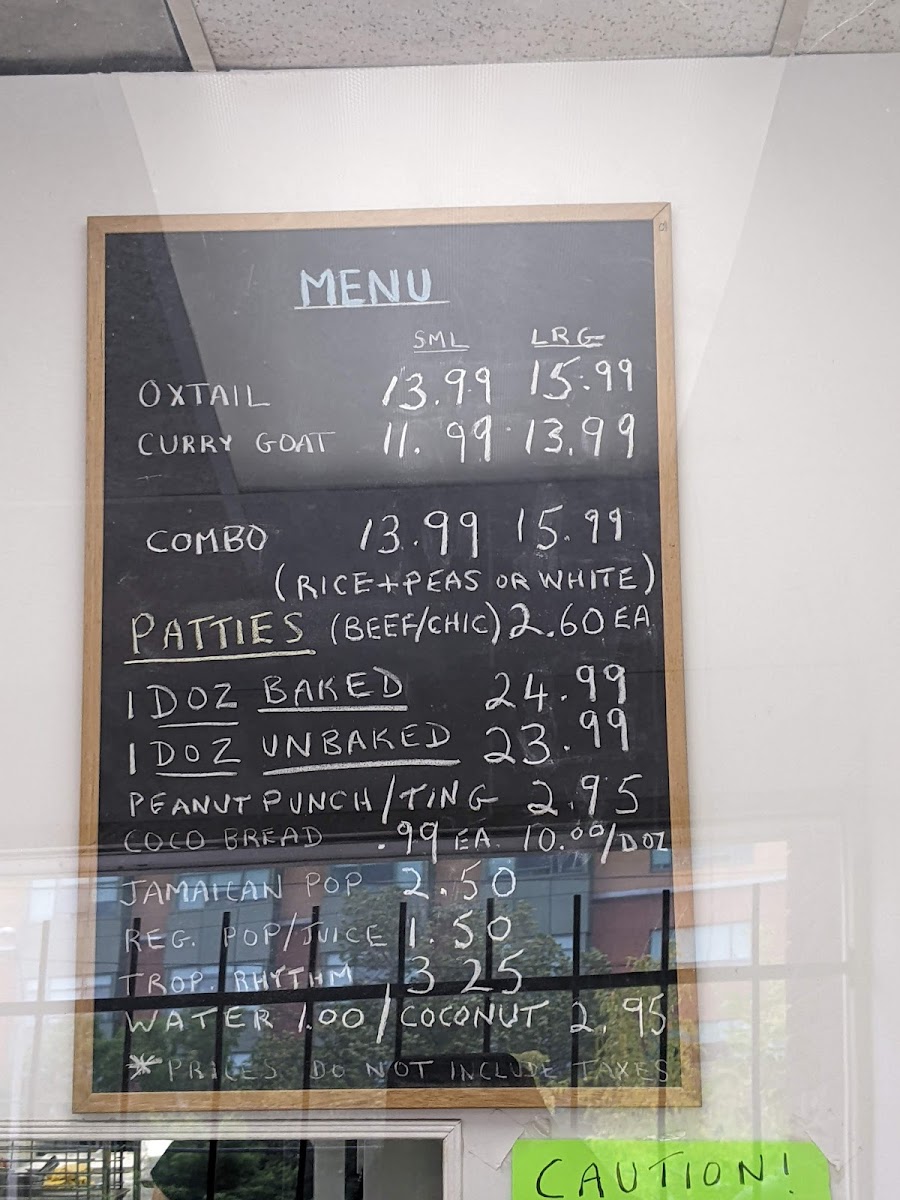 MENU
SML LRG
OXTAIL 13.99 15.99
CURRY GOAT 11.99 13.99
COMBO 13.99 15.99
(RICE+PEAS OR WHITE)
PATTIES (BEEF/CHIC) 2.60 EA
1 DOZ BAKED 24.99
1 DOZ UNBAKED 23.99
PEANUT PUNCH/TING 2.95
COCO BREAD .99 EA. 10.00/DOZ
JAMAICAN POP 2.50
REG. POP/JUICE 1.50
TROP. RHYTHM 3.25
WATER 1.00/COCONUT 2.95
* PRICES DO NOT INCLUDE TAXES
CAUTION!